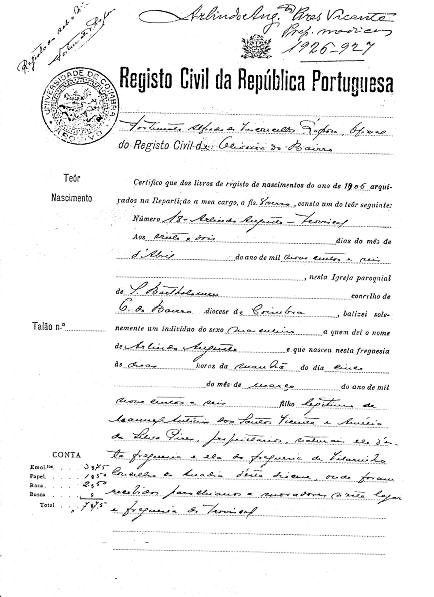 Arlindo Aug.to Pires Vicente
Prep. médicos
1926-927
UNIVERSIDADE DE COIMBRA
Registo Civil da República Portuguesa
Alfredo de Vasconcellos Oficial
do Registo Civil de Oliveira do Bairro
Teôr
Nascimento
Certifico que dos livros de registo de nascimentos do ano de 1906 arqui-
vados na Repartição a meu cargo, a fls. consta um do teôr seguinte:
Número 18 - Arlindo Augusto - Troviscal
Aos vinte e dois dias do mês de
d'Abril do ano de mil novecentos e seis
, nesta Igreja paroquial
de S. Bartholomeu concelho
de O. do Bairro diocese de Coimbra, batizei sole-
Talão n.º
nemente um individuo do sexo masculino a quem dei o nome
de Arlindo Augusto e que nasceu nesta freguesia
ás duas horas da manhã do dia cinco
do mês de março do ano de mil
novecentos e seis filho legitimo de
Manuel Antonio dos Santos Vicente e Amelia
da Silva Pires, proprietarios, naturaes elle d'es-
ta freguesia e ela da freguesia de
CONTA
concelho de Anadia d'esta diocese, onde foram
Emol.tos
Papel
Rasa
Busca
Total
recebidos parochianos e moradores n'este logar
e freguesia do Troviscal